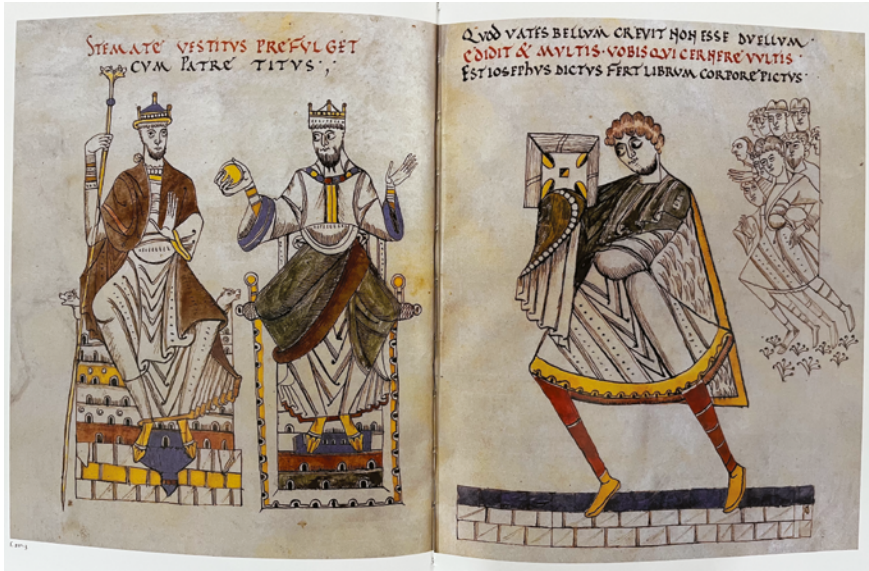 STEMATE VESTITUS PREFULGET
CUM PATRE TITUS
QUOD VATES BELLUM CREVIT NON ESSE DUELLUM
EDIDIT & MULTIS · VOBIS QUI CERNERE VULTIS
EST IOSEPHUS DICTUS FERT LIBRUM CORPORE PICTUS